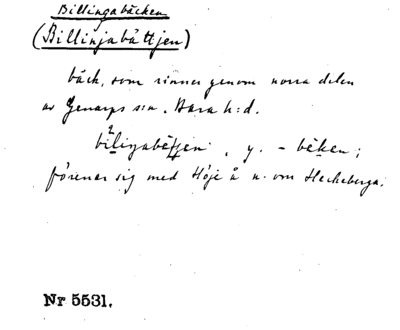 Billingabäcken
(Billinjabåttjen)
bäck, som rinner genom norra delen
av Genarps s:n, Bara h:d.
y. - bäken;
förenar sig med Höje å n. om Häckeberga.
Nr 5531.